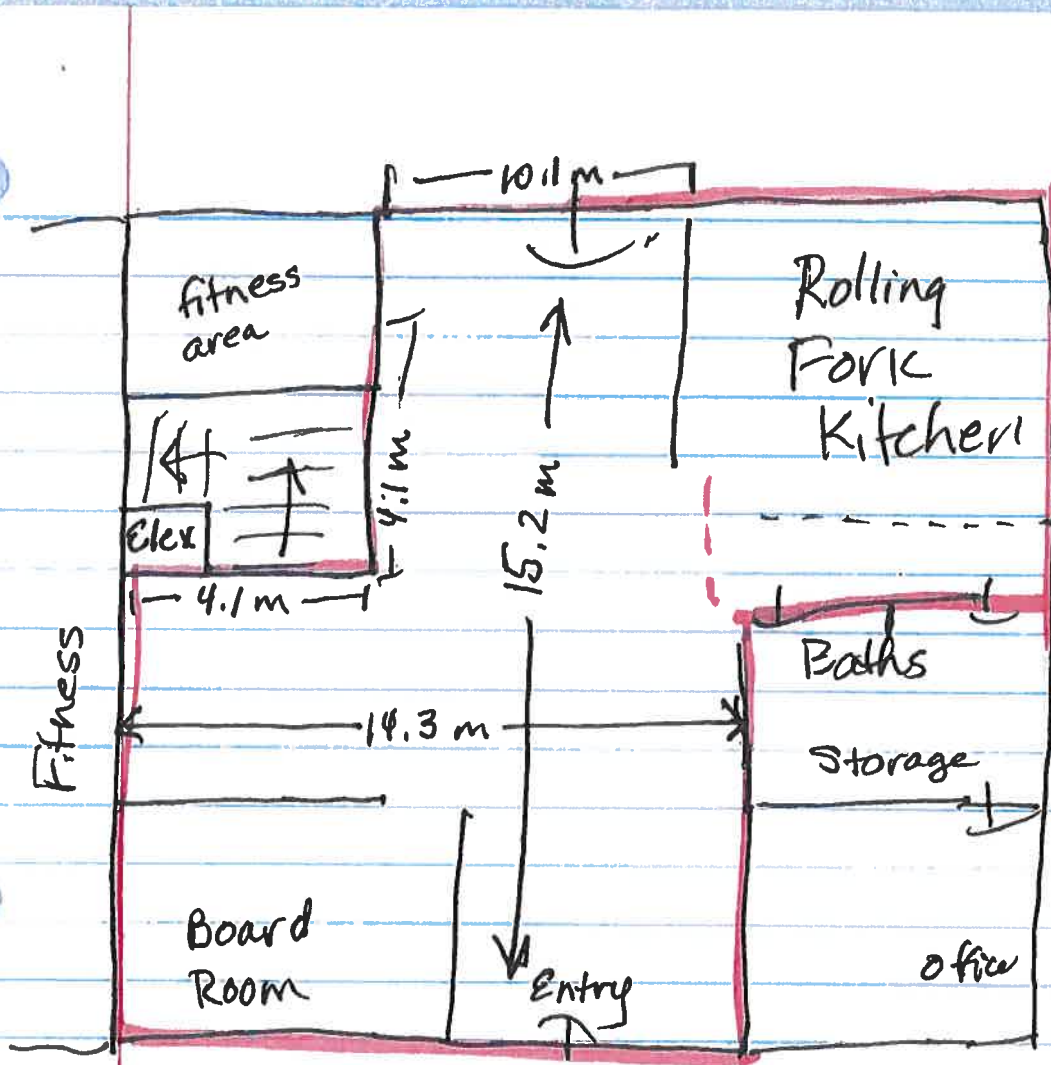 10.1 m
fitness
area
Rolling
Fork
Kitchen
4.1 m
15.2 m
Elev
4.1 m
Fitness
Baths
14.3 m
Storage
Board
Room
Entry
office